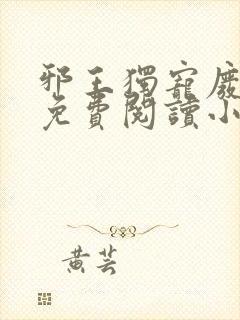 邪王獨寵廢
免費閱讀小
黃芸